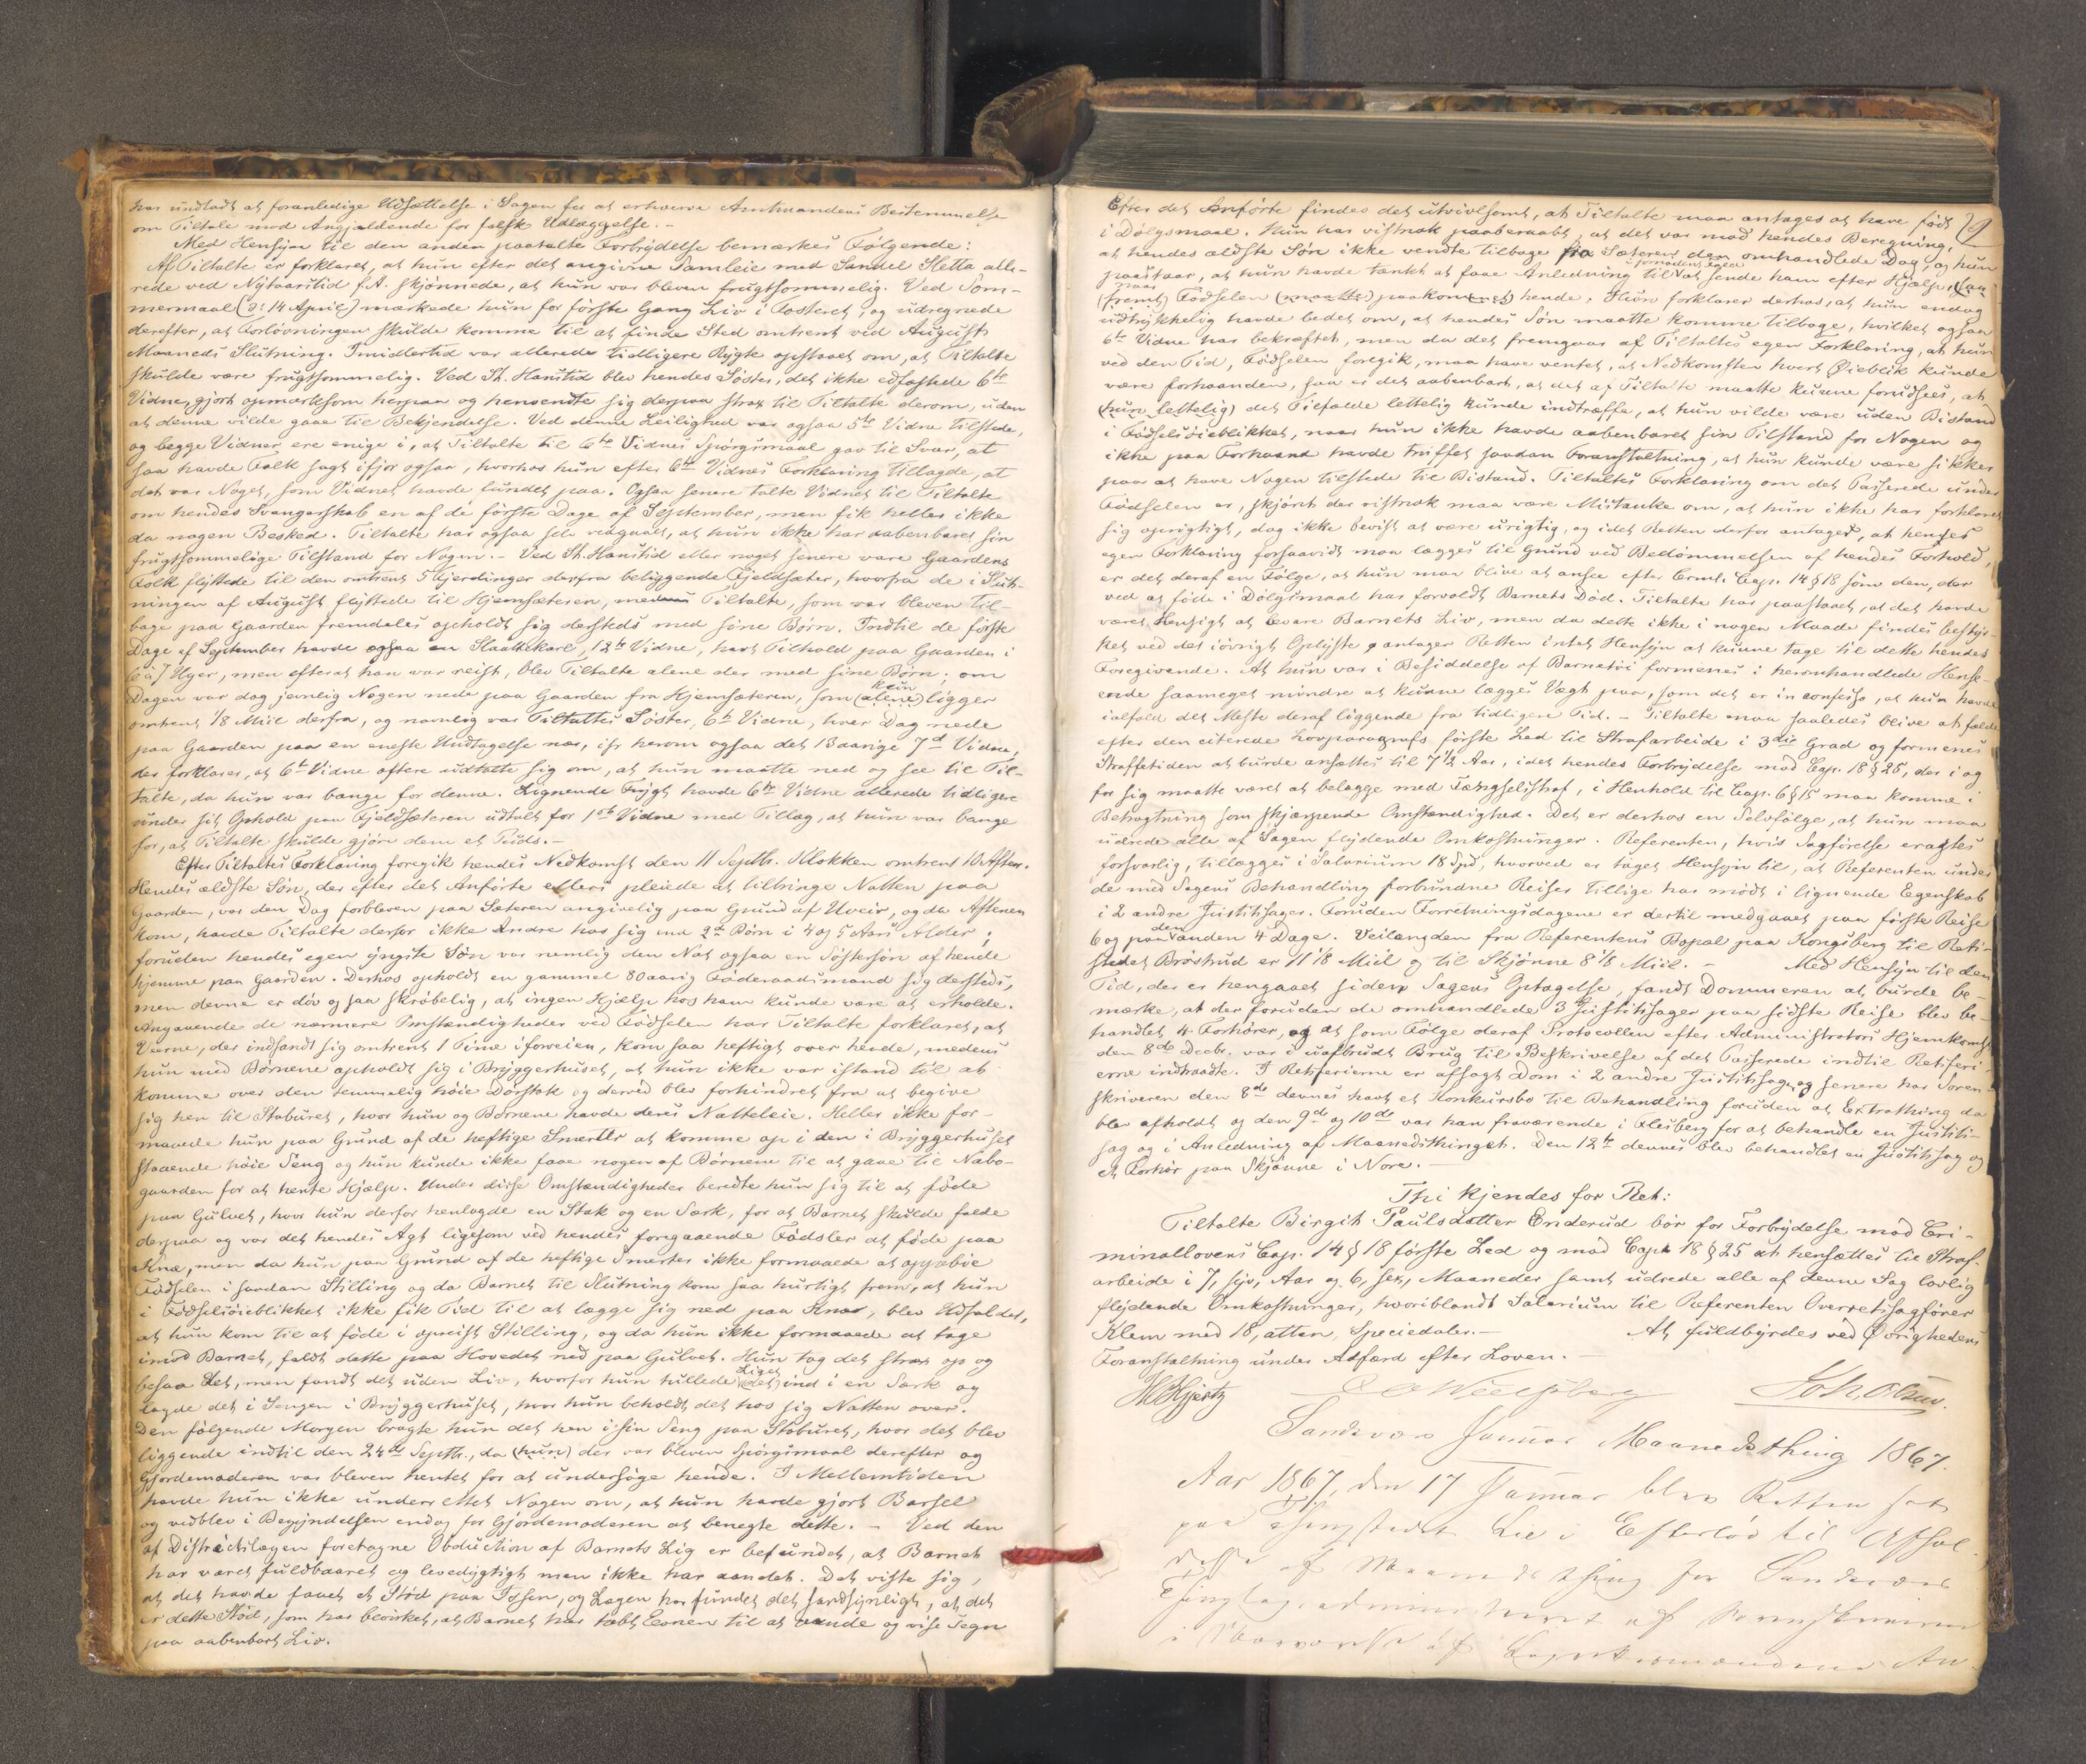 har undladt at foranledige Udsættelse i Sagen for at erhverve Amtmandens Bestemmelse
om Tiltale mod Angjældende for falsk Udlæggelse. -
Med Hensyn til den anden paatalte Forbrydelse bemærkes Følgende:
Af Tiltalte er forklaret, at hun efter det angivne Samleie med Sandel Sletta alle-
rede ved Nytaarstid f.A. skjønnede, at hun var bleven frugtsommelig. Ved Som-
mermaal (ɔ: 14 April) mærkede hun for første Gang Liv i Fosteret, og udregnede
derefter, at Forløsningen skulde komme til at finde Sted omtrent ved Augusts
Maaneds Slutning. Imidlertid var allerede tidligere Rygte opstaaet om, at Tiltalte
skulde være frugtsommelig. Ved St. Hanstid blev hendes Søster, det ikke edfæstede 6te
Vidne, gjort opmærksom herpaa og henvendte sig derpaa strax til Tiltalte derom, uden
at denne vilde gaae til Bekjendelse. Ved denne Leilighed var ogsaa 5te Vidne tilstede,
og begge Vidner ere enige i, at Tiltalte til 6te Vidnes Spørgsmaal gav til Svar, at
saa havde Folk sagt ifjor ogsaa, hvorhos hun efter 6te Vidnes Forklaring tillagde, at
det var Noget, som Vidnet havde fundet paa. Ogsaa senere talte Vidnet til Tiltalte
om hendes Svangerskab en af de første Dage af September, men fik heller ikke
da nogen Besked. Tiltalte har ogsaa selv vedgaaet, at hun ikke har aabenbaret sin
frugtsommelige Tilstand for Nogen. - Ved St. Hanstid eller noget senere vare Gaardens
Folk flyttede til den omtrent 5 Fjerdinger derfra beliggende Fjeldsæter, hvorfra de i Slut-
ningen af August flyttede til Hjemsæteren, medens Tiltalte, som var bleven til-
bage paa Gaarden fremdeles opholdt sig dersteds med sine Børn. Indtil de første
Dage af September havde ogsaa en Slaattekarl, 12te Vidne, havt Tilhold paa Gaarden i
6 a 7 Uger, men efterat han var reist, blev Tiltalte alene der med sine Børn; om
Dagen var dog jevnlig Nogen nede paa Gaarden fra Hjemsæteren, som (alene) kun ligger
omtrent 1/8 Miil derfra, og navnlig var Tiltaltes Søster, 6te Vidne, hver Dag nede
paa Gaarden paa en eneste Undtagelse nær, cfr herom ogsaa det 13aarige 7de Vidne,
der forklarer, at 6te Vidne oftere udtalte sig om, at hun maatte ned og see til Til-
talte, da hun var bange for denne. Lignende Frygt havde 6te Vidne allerede tidligere
under sit Ophold paa Fjeldsæteren udtalt for 1ste Vidne med Tillæg, at hun var bange
for, at Tiltalte skulde gjøre dem et Puds. -
Efter Tiltaltes Forklaring foregik hendes Nedkomst den 11 Septbr. Klokken omtrent 10 Aften.
Hendes ældste Søn, der efter det Anførte ellers pleiede at tilbringe Natten paa
Gaarden, var den Dag forbleven paa Sæteren angivelig paa Grund af Uveir, og da Aftenen
kom, havde Tiltalte derfor ikke Andre hos sig end 2de Børn i 4 og 5 Aars Alder;
foruden hendes egen yngste Søn var nemlig den Nat ogsaa en Søstersøn af hende
hjemme paa Gaarden. Derhos opholdt en gammel 80aarig Føderaadsmand sig dersteds,
men denne er døv og saa skrøbelig, at ingen Hjælp hos ham kunde være at erholde.
Angaaende de nærmere Omstændigheder ved Fødselen har Tiltalte forklaret, at
Veerne, der indfandt sig omtrent 1 Time iforveien, kom saa heftigt over hende, medens
hun med Børnene opholdt sig i Bryggerhuset, at hun ikke var istand til at
komme over den temmelig høie Dørstok og derved blev forhindret fra at begive
sig hen til Staburet, hvor hun og Børnene havde deres Natteleie. Heller ikke for-
maaede hun paa Grund af de heftige Smerter at komme op i den i Bryggerhuset
staaende høie Seng og hun kunde ikke faae nogen af Børnene til at gaae til Nabo-
gaarden for at hente Hjælp. Under disse Omstændigheder beredte hun sig til at føde
paa Gulvet, hvor hun derfor henlagde en Stak og en Særk, for at Barnet skulde falde
derpaa og var det hendes Agt ligesom ved hendes foregaaende Fødsler at føde paa
Knæ, men da hun paa Grund af de heftige Smerter ikke formaaede at oppebie
Fødselen i saadan Stilling og da Barnet til Slutning kom saa hurtigt frem, at hun
i Fødselsøieblikket ikke fik Tid til at lægge sig ned paa Knæ, blev Udfaldet,
at hun kom til at føde i opreist Stilling, og da hun ikke formaaede at tage
imod Barnet, faldt dette paa Hovedet ned paa Gulvet. Hun tog det strax op og
besaa det, men fandt det uden Liv, hvorfor hun tullede (det) Liget ind i en Særk og
lagde det i Sengen i Bryggerhuset, hvor hun beholdt det hos sig Natten over.
Den følgende Morgen bragte hun det hen i sin Seng paa Staburet, hvor det blev
liggende indtil den 24de Septbr., da (hun) der var bleven Spørgsmaal derefter og
Gjordemoderen var bleven hentet for at undersøge hende. I Mellemtiden
havde hun ikke underrettet Nogen om, at hun havde gjort Barsel
og vedblev i Begyndelsen endog for Gjordemoderen at benegte dette. - Ved den
af Districtslægen foretagne Obduction af Barnets Lig er befundet, at Barnet
har været fuldbaaret og levedygtigt men ikke har aandet. Det viste sig,
at det havde faaet et Stød paa Issen, og Lægen har fundet det sandsynligt, at det
er dette Stød, som har bevirket, at Barnet har tabt Evnen til at aande og vise Tegn
paa aabenbart Liv.
9
Efter det Anførte findes det utvivlsomt, at Tiltalte maa antages at have født
i Dølgsmaal. Hun har vistnok paaberaabt, at det var mod hendes Beregning,
at hendes ældste Søn ikke vendte tilbage fra Sæteren den omhandlede Dag, og hun
paastaar, at hun havde tænkt at faae Anledning til i fornødent Fald at sende ham efter Hjælp, (saa
(fremt) naar Fødselen (maatte) paakom(met) hende. Hun forklarer derhos, at hun endog
udtrykkelig havde bedet om, at hendes Søn maatte komme tilbage, hvilket ogsaa
6te Vidne har bekræftet, men da det fremgaar af Tiltaltes egen Forklaring, at hun
ved den Tid, Fødselen foregik, maa have ventet, at Nedkomsten hvert Øieblik kunde
være forhaanden, saa er det aabenbart, at det af Tiltalte maatte kunne forudsees, at
(hun lettelig) det Tilfælde lettelig kunde indtræffe, at hun vilde være uden Bistand
i Fødselsøieblikket, naar hun ikke havde aabenbaret sin Tilstand for Nogen og
ikke paa Forhaand havde truffet saadan Foranstaltning, at hun kunde være sikker
paa at have Nogen tilstede til Bistand. Tiltaltes Forklaring om det Passerede under
Fødselen er, skjønt der vistnok maa være Mistanke om, at hun ikke har forklaret
sig oprigtigt, dog ikke bevist at være urigtig, og idet Retten derfor antager, at hendes
egen Forklaring forsaavidt maa lægges til Grund ved Bedømmelsen af hendes Forhold,
er det deraf en Følge, at hun maa blive at ansee efter Crml. Cap. 14 § 18 som den, der
ved at føde i Dølgsmaal har forvoldt Barnets Død. Tiltalte har paastaaet, at det havde
været Hensigt at bevare Barnets Liv, men da dette ikke i nogen Maade findes bestyr-
ket ved det iøvrigt Oplyste antager Retten intet Hensyn at kunne tage til dette hendes
Foregivende. At hun var i Besiddelse af Barnetøi formenes i heromhandlede Hense-
ende saameget mindre at kunne lægges Vægt paa, som det er in confesso, at hun havde
ialfald det Meste deraf liggende fra tidligere Tid. - Tiltalte maa saaledes blive at fælde
efter den citerede Lovparagrafs første Led til Strafarbeide i 3die Grad og formenes
Straffetiden at burde ansættes til 7 1/2 Aar, idet hendes Forbrydelse mod Cap. 18 § 25, der i og
for sig maatte været at belægge med Fængselsstraf, i Henhold til Cap. 6 § 15 maa komme i
Betragtning som skjærpende Omstændighed. Det er derhos en Selvfølge, at hun maa
udrede alle af Sagen flydende Omkostninger. Referenten, hvis Sagførelse eragtes
forsvarlig, tillægges i Salarium 18 Spd, hvorved er taget Hensyn til, at Referenten under
de med Sagens Behandling forbundne Reiser tillige har mødt i lignende Egenskab
i 2 andre Justitssager. Foruden Forretningsdagene er dertil medgaaet paa første Reise
6 og paa den anden 4 Dage. Veilængden fra Referentens Bopæl paa Kongsberg til Ret-
stedet Brøstrud er 11 1/8 Miil og til Skjønne 8 1/8 Miil. - Med Hensyn til den
Tid, der er hengaaet siden Sagens Optagelse, fandt Dommeren at burde be-
mærke, at der foruden de omhandlede 3 Justitssager paa sidste Reise blev be-
handlet 4 Forhører, og at som Følge deraf Protocollen efter Administrators Hjemkomst
den 8de Decbr. var i uafbrudt Brug til Beskrivelse af det Passerede indtil Retsferi-
erne indtraadte. I Retsferierne er afsagt Dom i 2 andre Justitssager og senere har Soren-
skriveren den 8de dennes havt et Konkursbo til Behandling foruden at Extrathing da
blev afholdt og den 9de og 10de var han fraværende i Flesberg for at behandle en Justits-
sag og i Anledning af Maanedsthinget. Den 12te dennes blev behandlet en Justitssag og
et Forhør paa Skjønne i Nore. -
Thi kjendes for Ret:
Tiltalte Birgit Paulsdatter Enderud bør for Forbrydelse mod Cri-
minallovens Cap. 14 § 18 første Led og mod Cap. 18 § 25 at hensættes til Straf-
arbeide i 7, syv, Aar og 6, sex, Maaneder samt udrede alle af denne Sag lovlig
flydende Omkostninger, hvoriblandt Salarium til Referenten Overretssagfører
Klem med 18, atten, Speciedaler. - At fuldbyrdes ved Øvrighedens
Foranstaltning under Adfærd efter Loven. -
Sandsvær Januar Maanedsthing 1867.
Aar 1867, den 17 Januar blev Retten sat
paa Thingstedet Lie i Efteløt til Afhol-
delse af Maanedsthing for Sandsvær
Thinglag, administreret af Sorenskriveren
i Overværelse af Laugrettesmændene An-